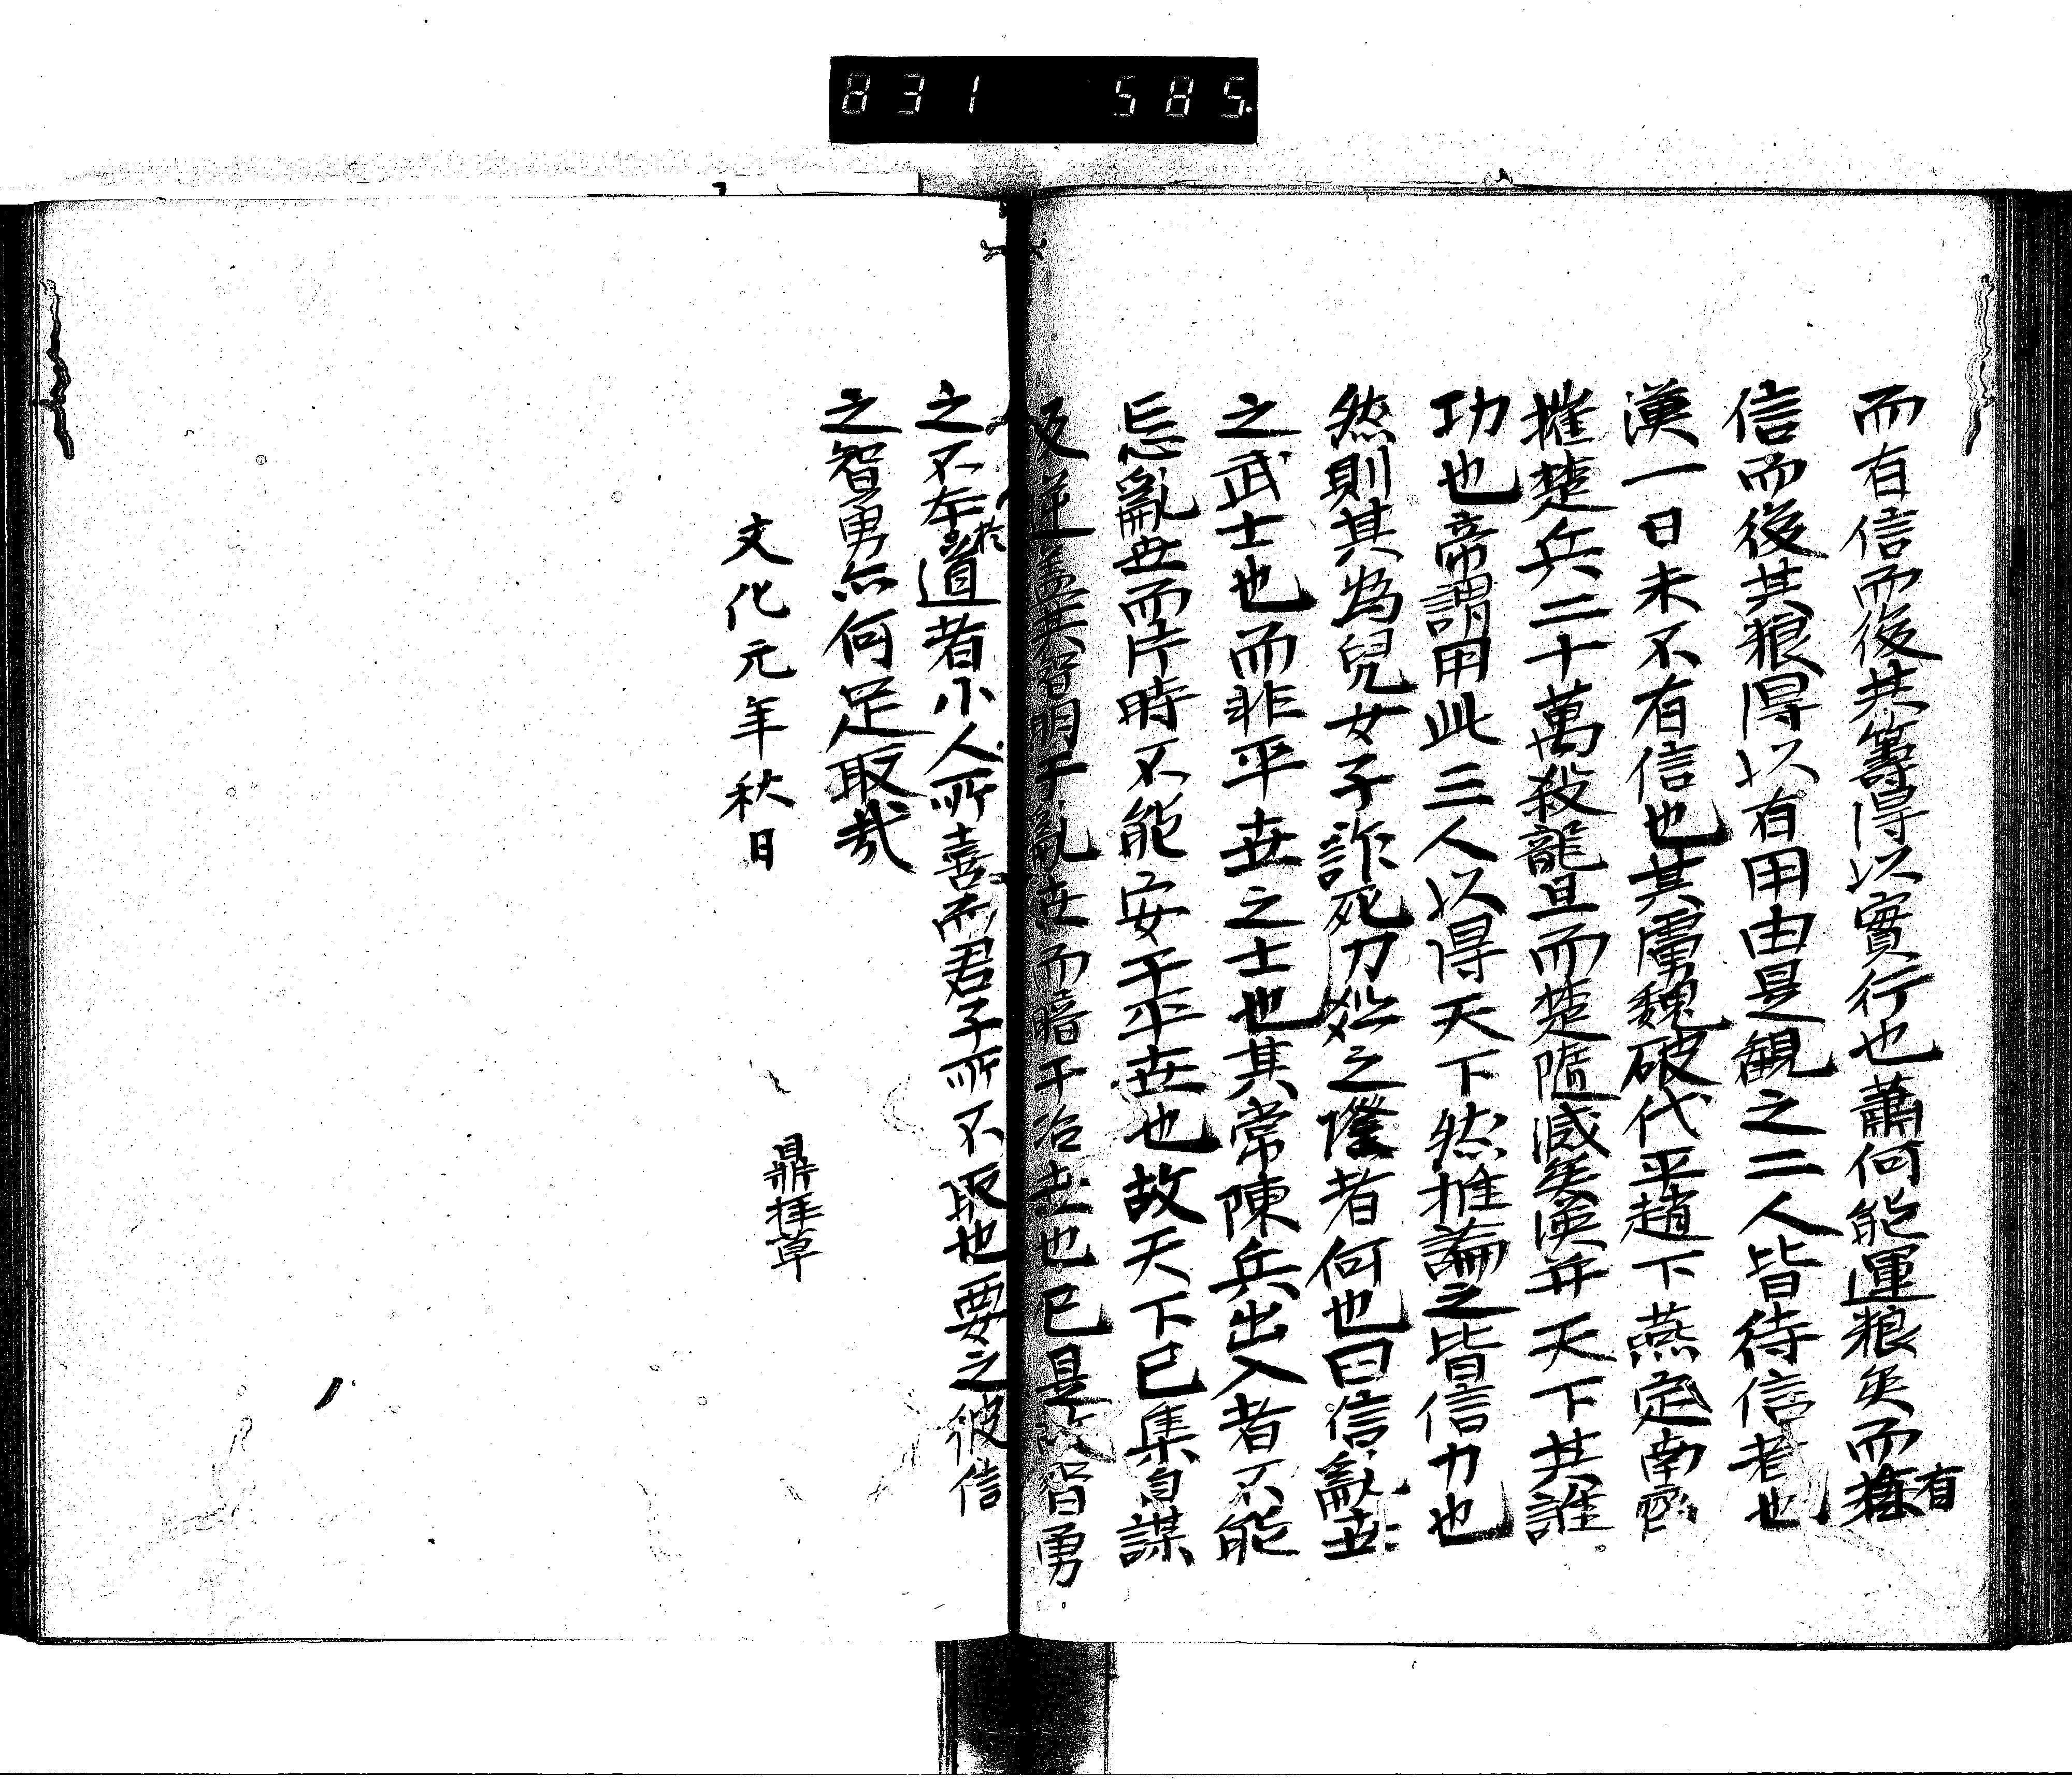 831 585.
而有信而後其籌得以實行也蕭何能運粮矣而有
信而後其粮得以有用由是観之二人皆待信者也
漢一日未不有信也其虜魏破代平趙下燕定南齊
摧楚兵二十萬殺龍且而楚隨滅矣漢并天下其誰
功也帝謂用此三人以得天下然推論之皆信力也
然則其為兒女子詐死力殺之僕者何也曰信亂世
之武士也而非平世之士也其常陳兵出入者不能
忘亂世而片時不能安于平世也故天下已集自謀
反逆蓋其智明于亂世而暗于治世也已是智勇
之不本於道者小人所喜而君子所不取也要之彼信
之智勇亦何足取哉
文化元年秋日
鼎拝草